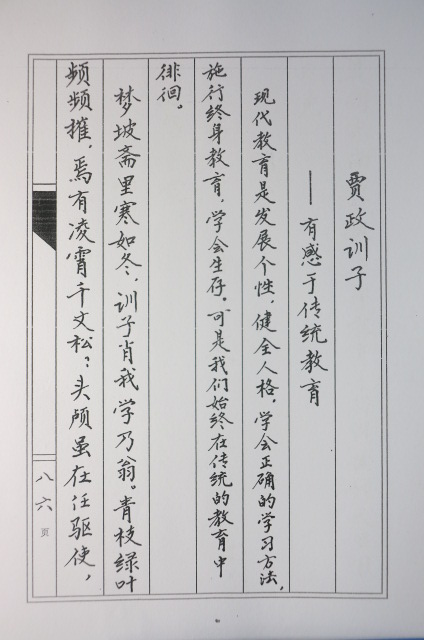 贾政训子
——有感于传统教育
现代教育是发展个性，健全人格，学会正确的学习方法，
施行终身教育，学会生存。可是我们始终在传统的教育中
徘徊。
梦坡斋里寒如冬，训子肖我学乃翁。青枝绿叶
频频摧，焉有凌霄千丈松？头颅虽在任驱使，
八六页